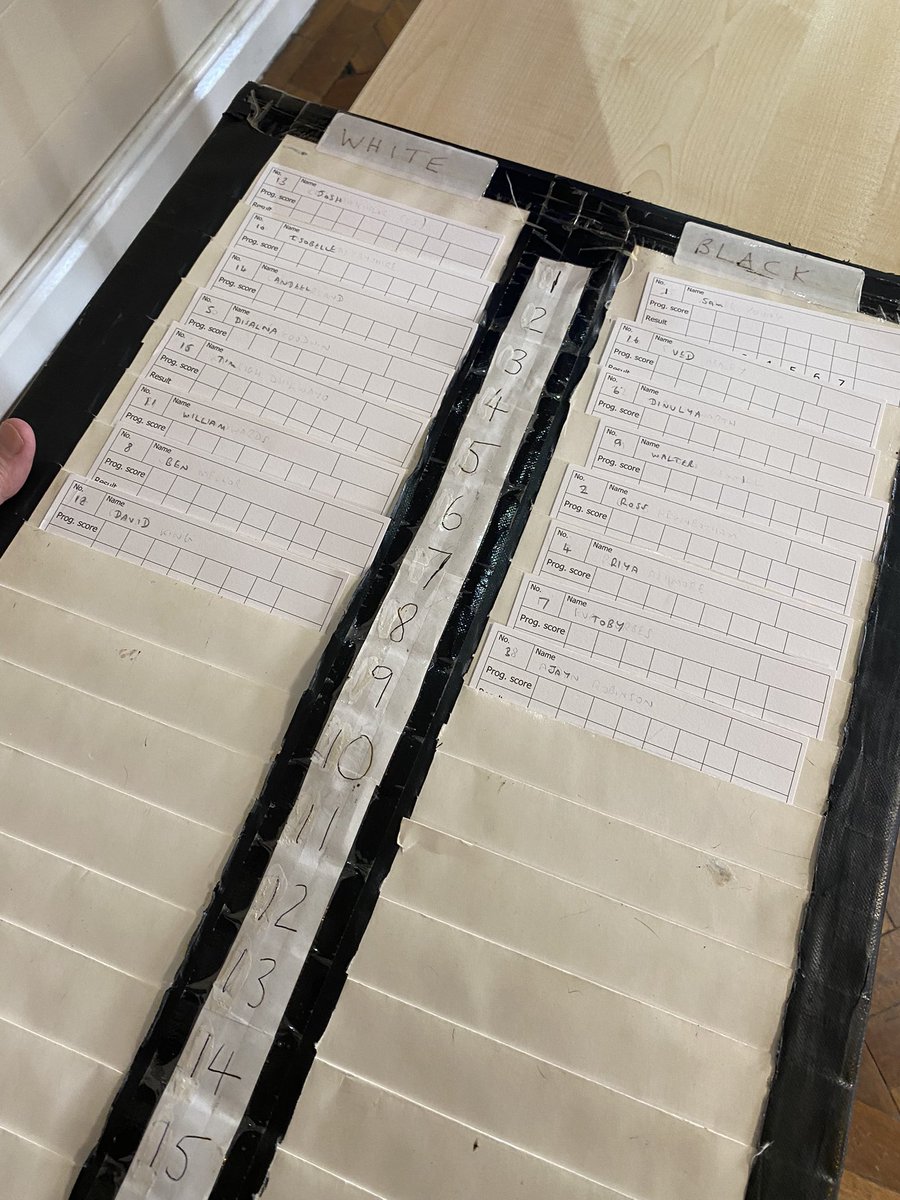 WHITE
No. 13 Name JOSH
Prog. score
Result
No. 10 Name ISOBELLE
Prog. score
No. Name
Prog. score
No. 5 Name
Prog. score
No. 15 Name TIM
Prog. score
Result
No. 11 Name WILLIAM
Prog. score
No. 8 Name BEN
Prog. score
Result
No. 12 Name DAVID KING
Prog. score
1
2
3
4
5
6
7
8
9
10
11
12
13
14
15
BLACK
No. 1 Name Sam
Prog. score
Result
5 6 7
No. 16 Name VED
Prog. score
Result
No. 6 Name DINULYA
Prog. score
No. 9 Name WALTER
Prog. score
No. 2 Name ROSS
Prog. score
No. 4 Name RIYA
Prog. score
No. 7 Name TOBY
Prog. score
No. Name ROBINSON
Prog. score
Result